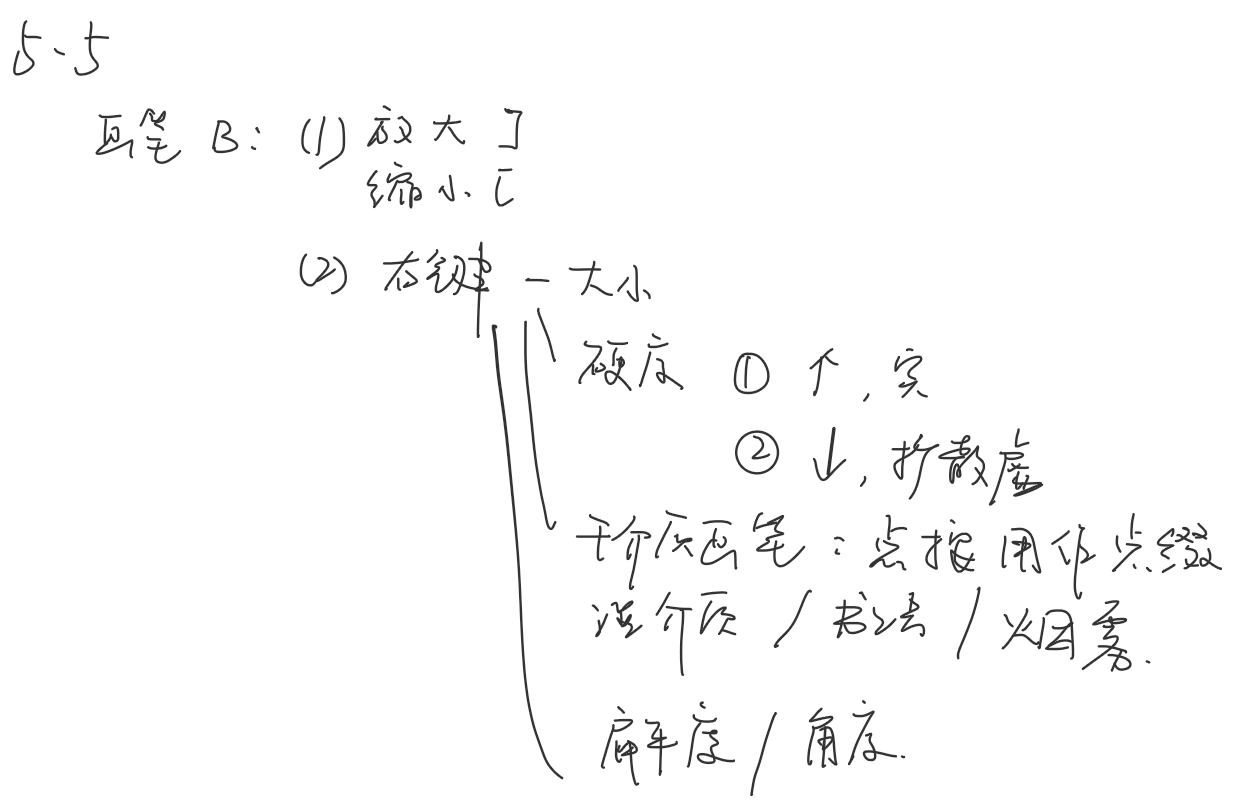 5、5
画笔 B: (1) 放大 ]
缩小 [
(2) 右键 - 大小
硬度 ① ↑, 实
② ↓, 扩散虚
干介质画笔: 点按用作点缀
湿介质 / 书法 / 烟雾.
扁平度 / 角度.